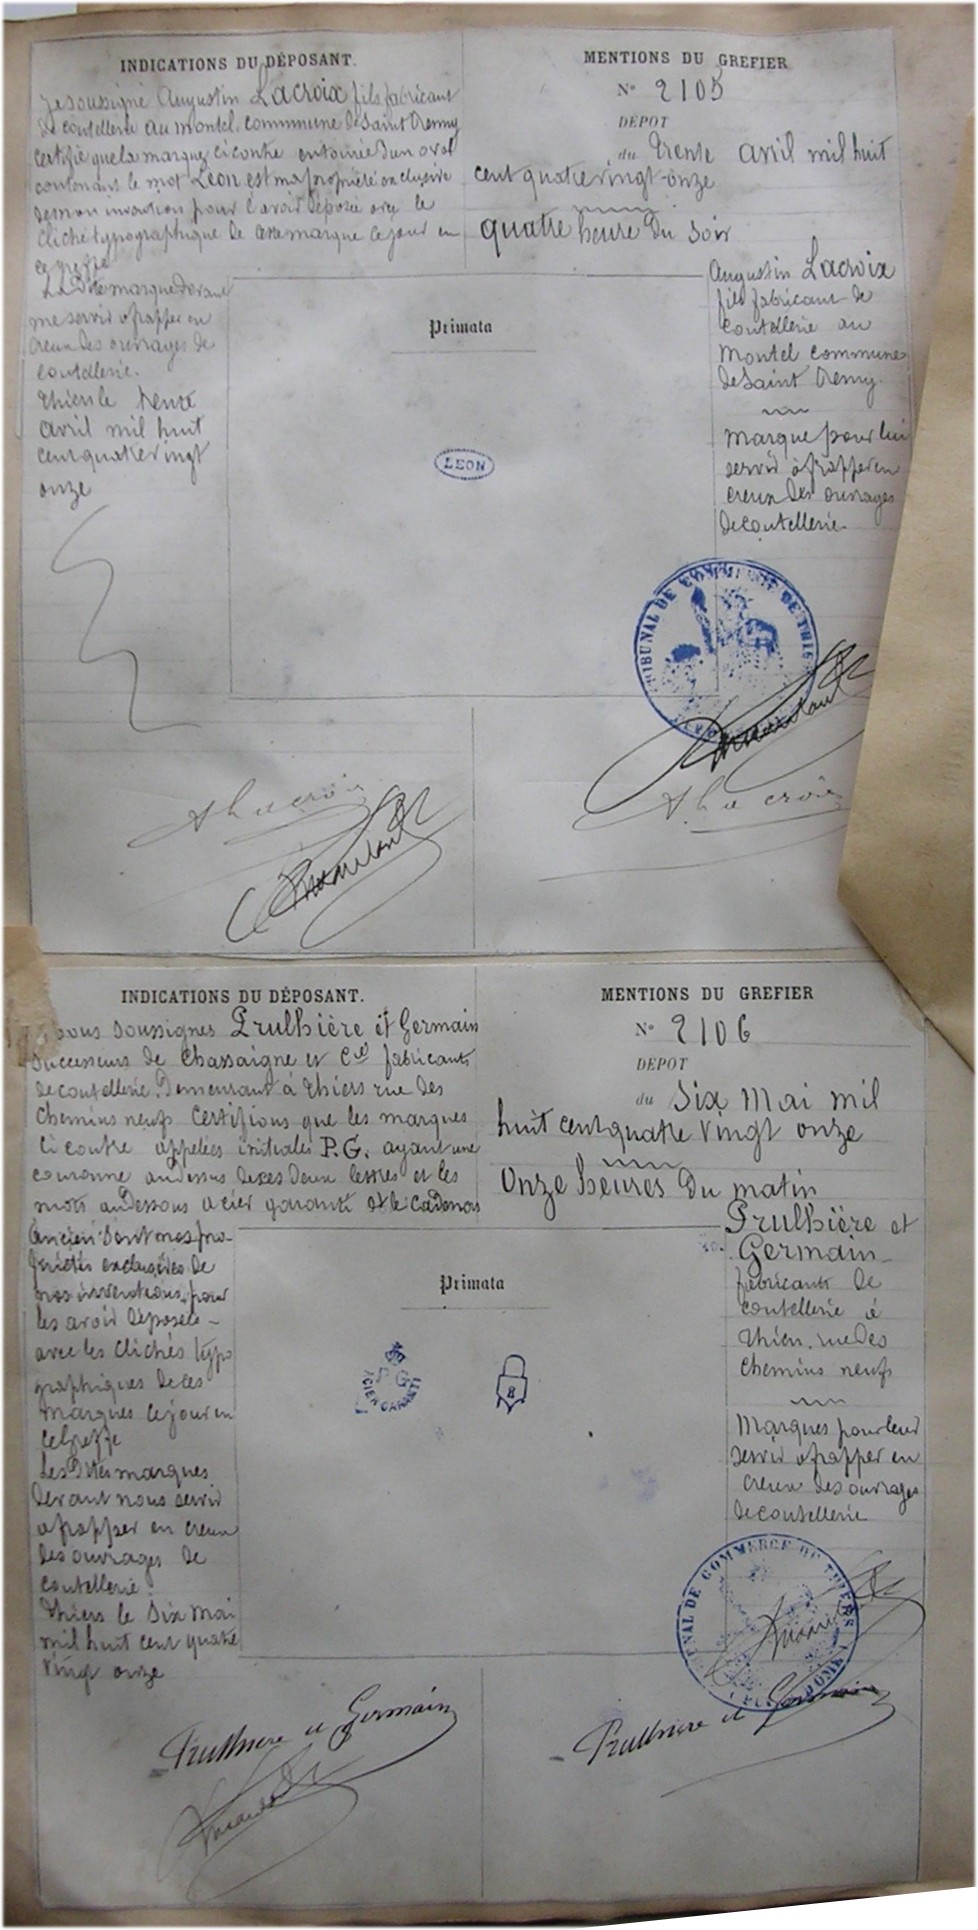 INDICATIONS DU DÉPOSANT.
Je soussigné Augustin Lacroix fils fabricant
de coutellerie au montel commune de Saint Remy
certifie que la marque ci contre entourée d'un oval
contenant le mot Léon est ma propriété exclusive
de mon invention pour l'avoir déposée avec le
cliché typographique de cette marque ce jour en
ce greffe
La Dite marque devant
me servir a frapper en
creux des ouvrages de
coutellerie.
Thiers le trente
avril mil huit
cent quatre vingt
onze
MENTIONS DU GREFIER
N° 2105
DÉPOT
du Trente avril mil huit
cent quatre vingt-onze
quatre heure du soir
Augustin Lacroix
fils fabricant de
coutellerie au
Montel commune
de Saint Remy.
Marque pour lui
servir à frapper en
creux des ouvrages
de coutellerie
Primata
LEON
TRIBUNAL DE COMMERCE DE THIERS
A Lacroix
A. Lacroix
INDICATIONS DU DÉPOSANT.
Nous soussignés Prulhière et Germain
successeurs de Chassaigne et Cie fabricants
de coutellerie Demeurant à Thiers rue des
chemins neufs Certifions que les marques
ci contre appelées initiales P.G. ayant une
couronne au dessus de ces deux lettres et les
mots au dessous acier garanti et le cadenas
ancien sont nos pro-
priétés exclusives de
nos inventions, pour
les avoir déposées
avec les clichés typo
graphiques de ces
marques ce jour en
ce greffe
Les Dites marques
devant nous servir
a frapper en creux
des ouvrages de
coutellerie.
Thiers le Six Mai
mil huit cent quatre
vingt onze
MENTIONS DU GREFIER
N° 2106
DÉPOT
du Six Mai mil
huit cent quatre vingt onze
Onze heures du matin
Prulhière et
Germain
fabricants de
coutellerie à
Thiers, rue des
chemins neufs
Marques pour leur
servir a frapper en
creux des ouvrages
de coutellerie
Primata
P G
ACIER GARANTI
8
TRIBUNAL DE COMMERCE DE THIERS
Prulhiere et Germain
Prulhiere et Germain